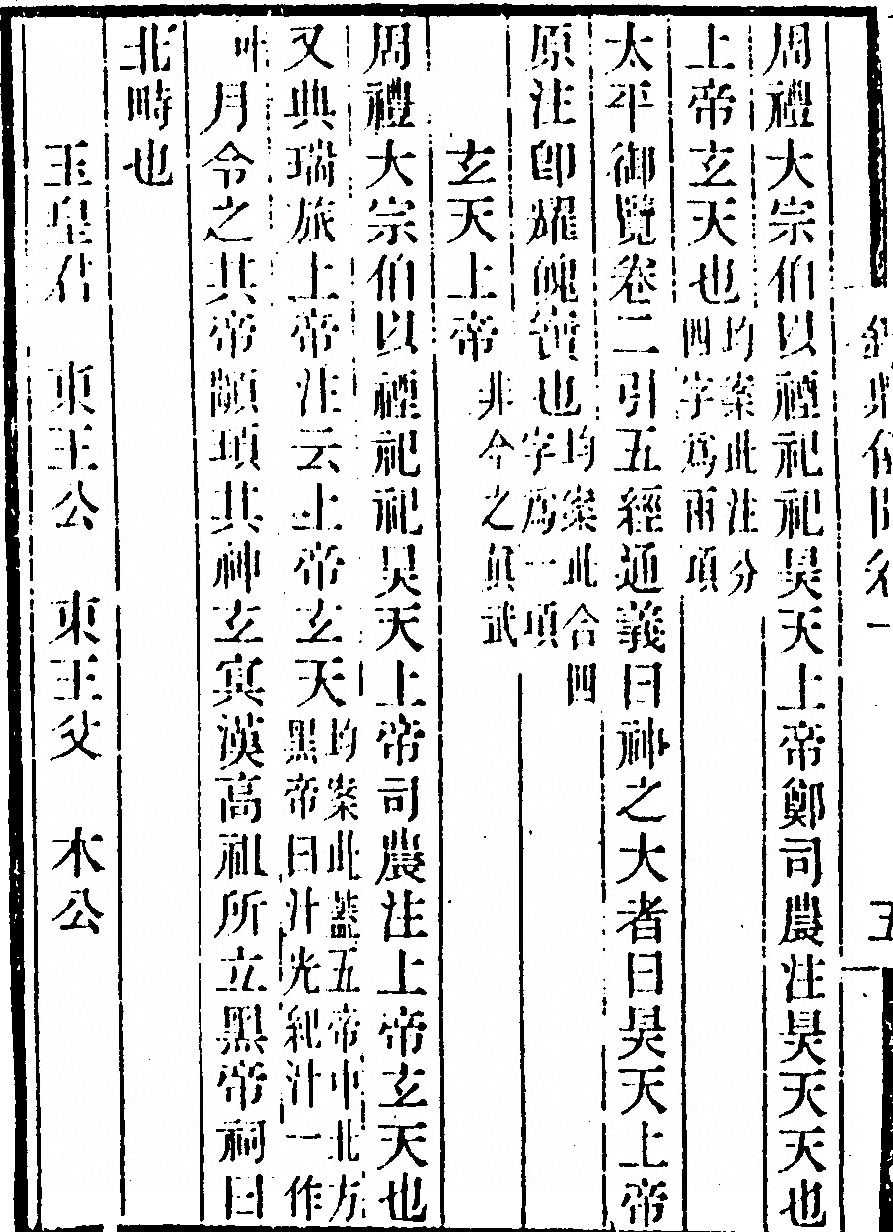 周禮大宗伯以禋祀祀昊天上帝鄭司農注昊天天也
上帝玄天也均案此注分四字爲兩項
太平御覽卷二引五經通義曰神之大者曰昊天上帝
原注卽耀魄寶也均案此合四字爲一項
玄天上帝非今之真武
周禮大宗伯以禋祀祀昊天上帝司農注上帝玄天也
又典瑞旅上帝注云上帝玄天均案此蓋五帝中北方黑帝曰汁光紀汁一作
叶月令之其帝顓頊其神玄冥漢高祖所立黑帝祠曰
北畤也
玉皇君 東王公 東王父 木公